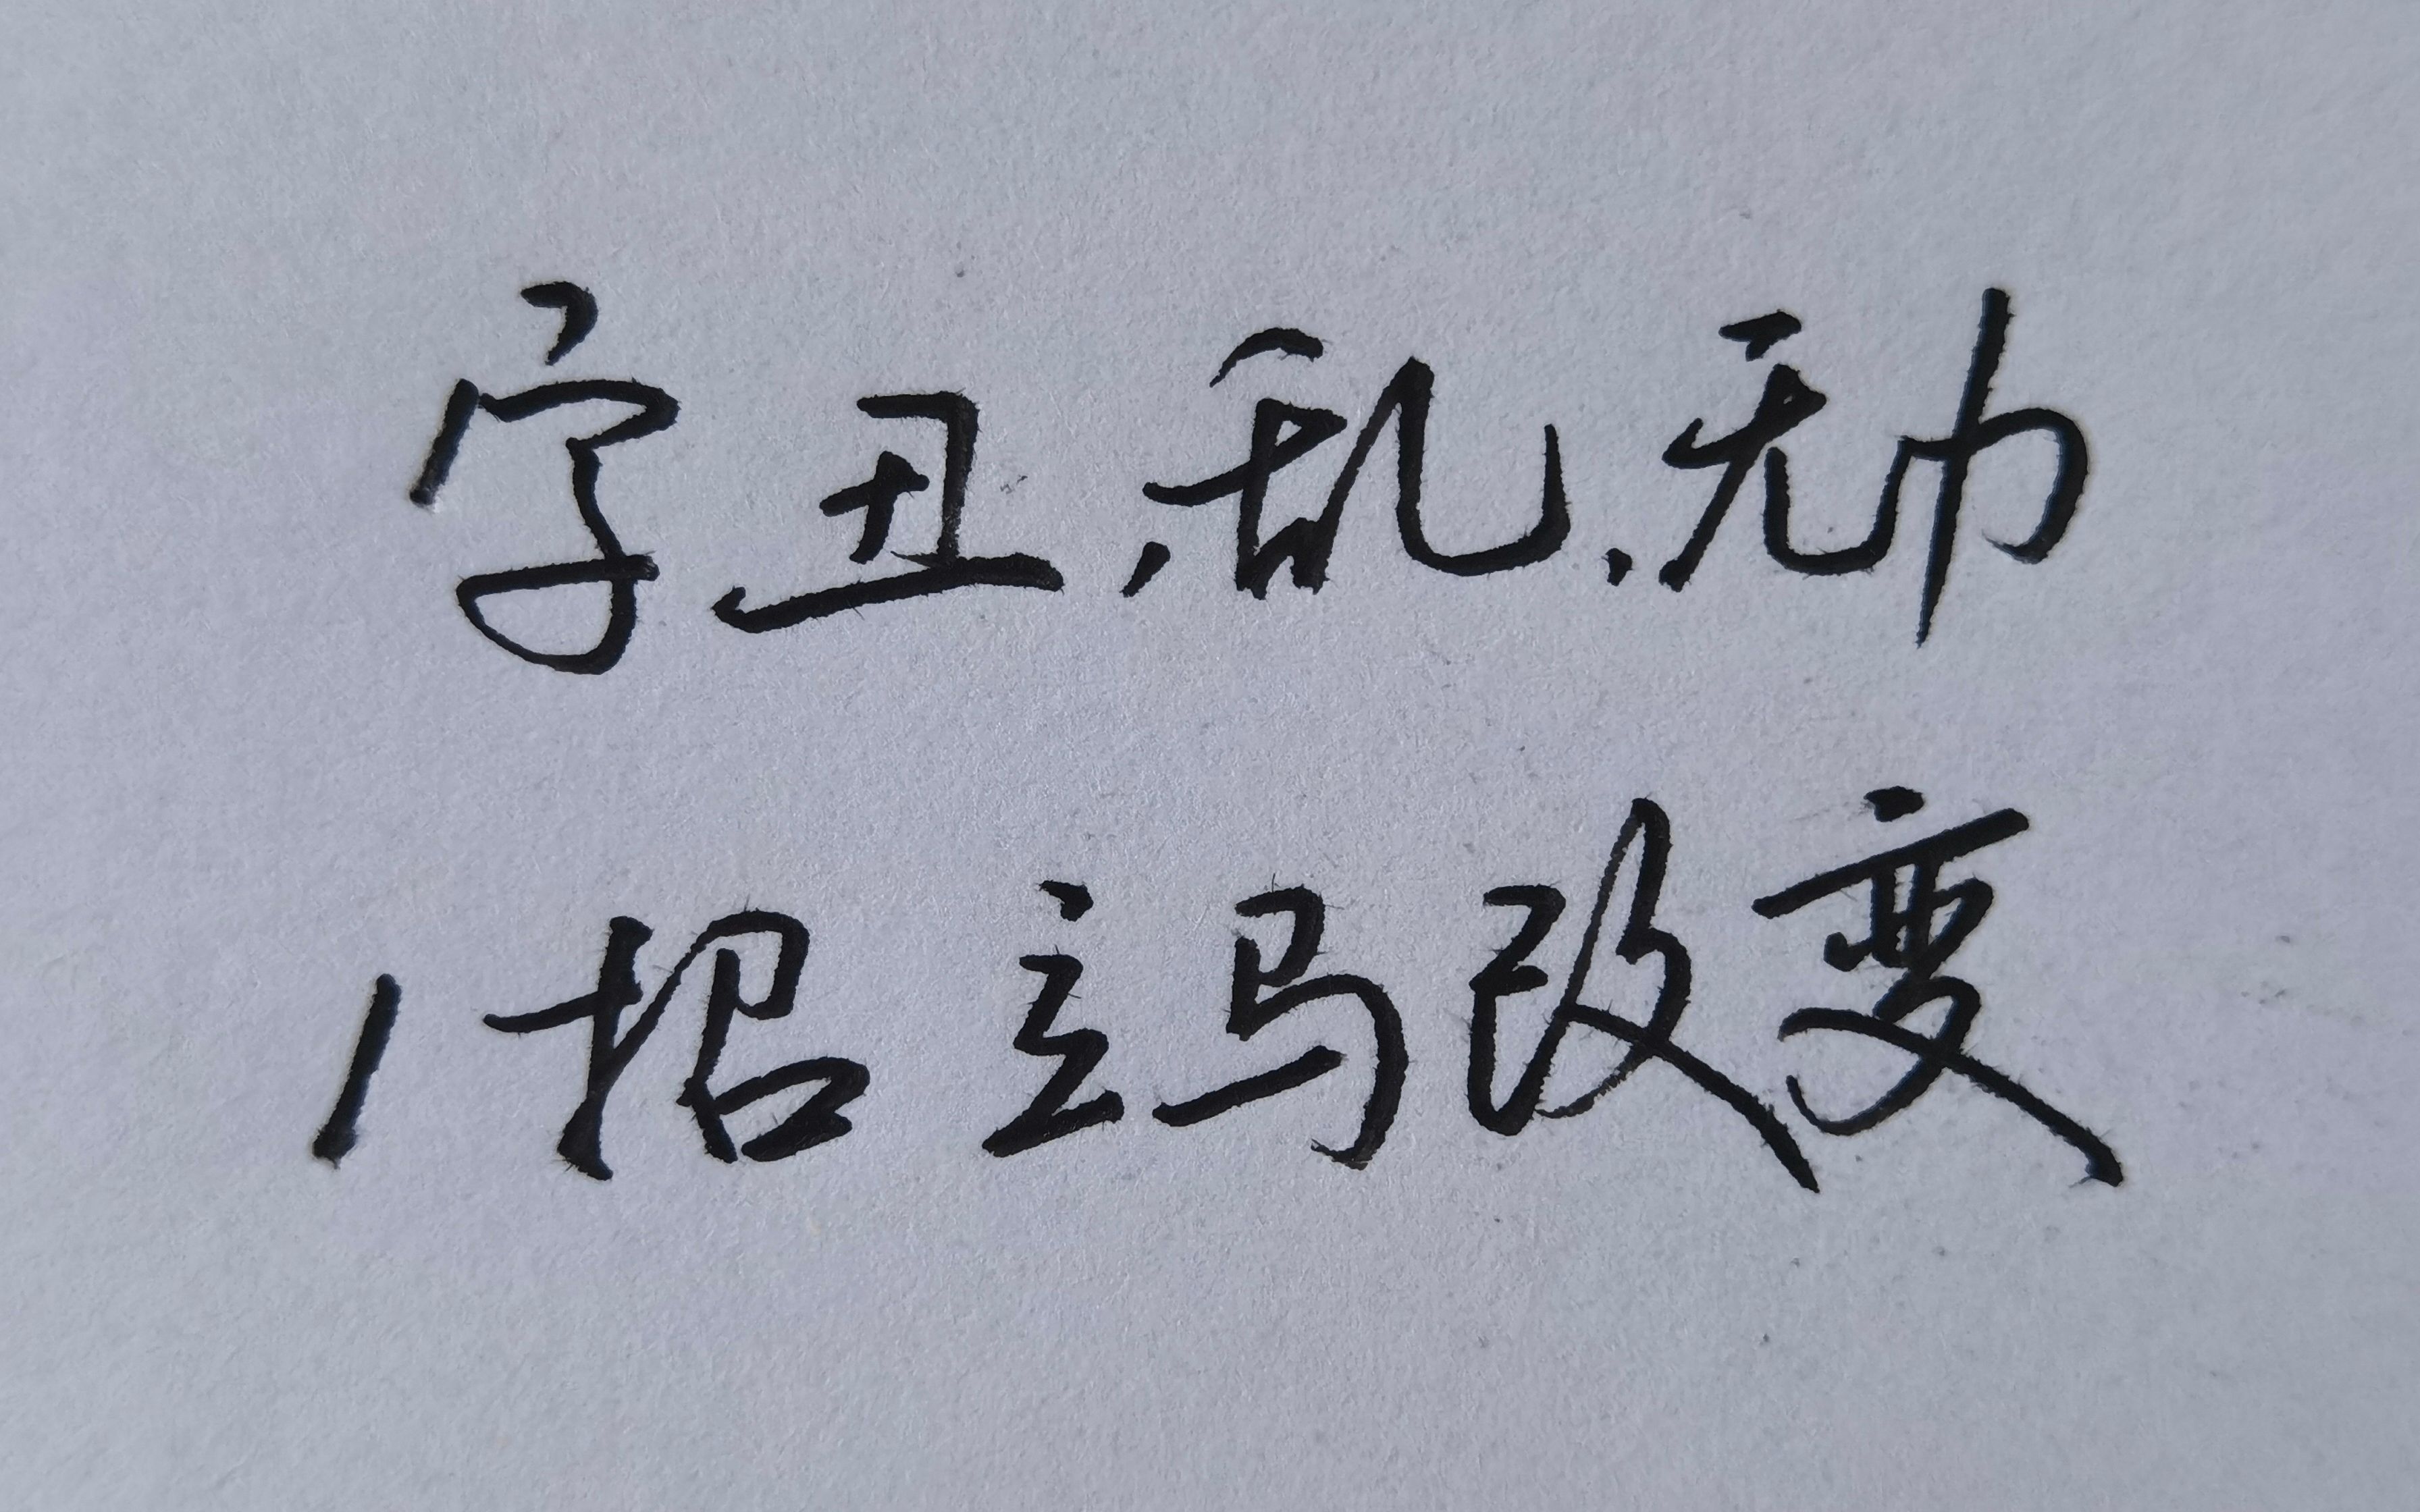 字丑,乱,无力
1招立马改变